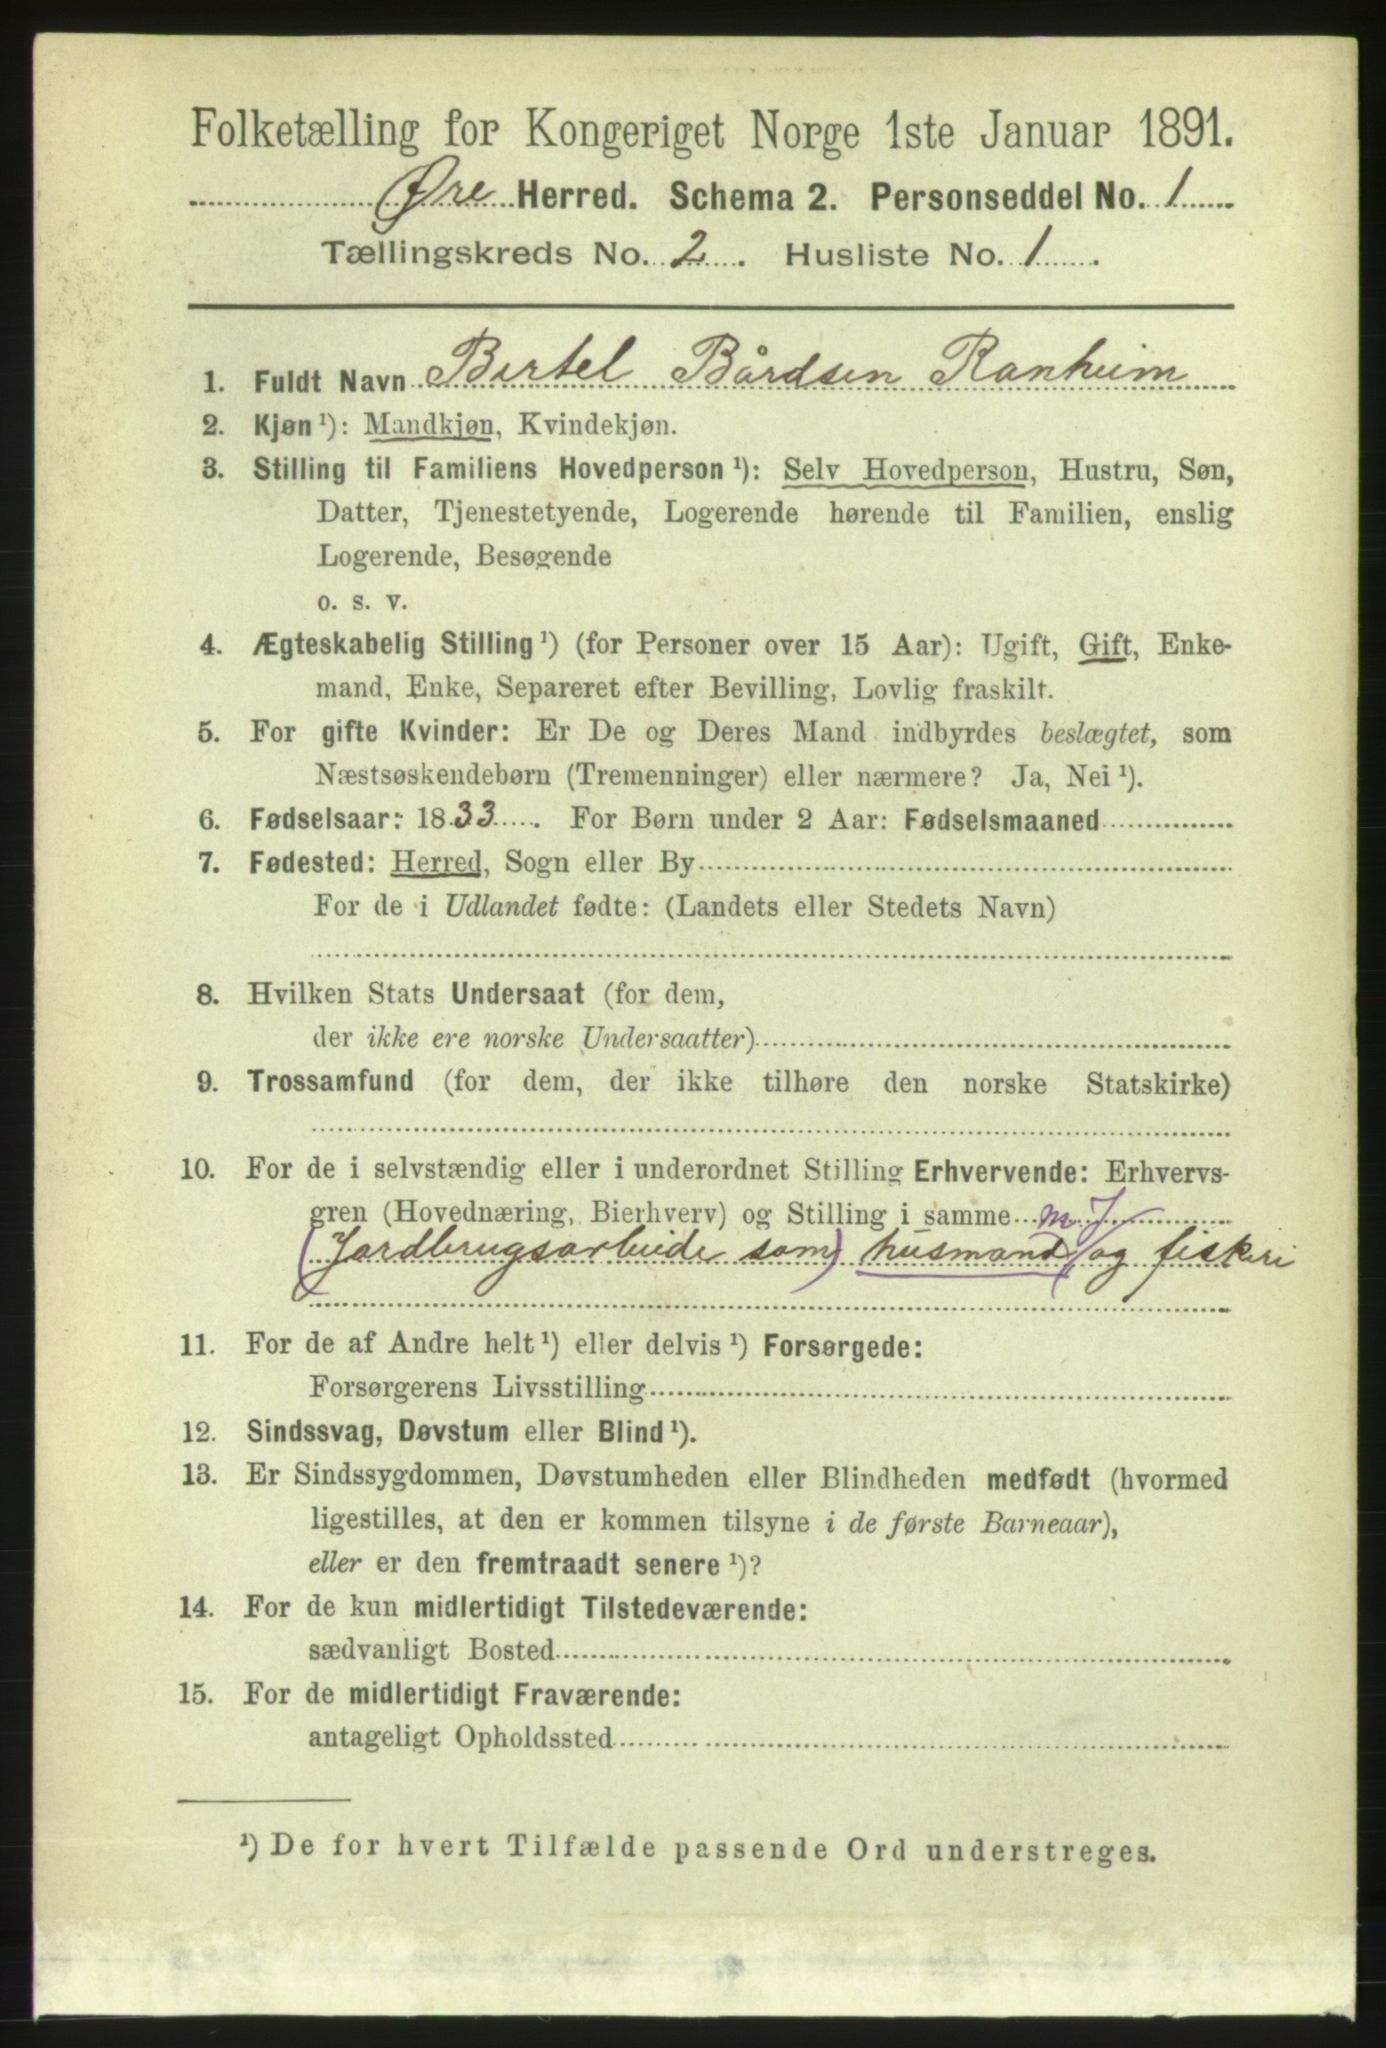 Folketælling for Kongeriget Norge 1ste Januar 1891.
Øre Herred. Schema 2. Personseddel No. 1
Tællingskreds No. 2. Husliste No. 1.
1. Fuldt Navn Bertel Bårdsen Ranheim
2. Kjøn ¹): Mandkjøn, Kvindekjøn.
3. Stilling til Familiens Hovedperson ¹): Selv Hovedperson, Hustru, Søn,
Datter, Tjenestetyende, Logerende hørende til Familien, enslig
Logerende, Besøgende
o. s. v.
4. Ægteskabelig Stilling ¹) (for Personer over 15 Aar): Ugift, Gift, Enke-
mand, Enke, Separeret efter Bevilling, Lovlig fraskilt.
5. For gifte Kvinder: Er De og Deres Mand indbyrdes beslægtet, som
Næstsøskendebørn (Tremenninger) eller nærmere? Ja, Nei ¹).
6. Fødselsaar: 1833. For Børn under 2 Aar: Fødselsmaaned
7. Fødested: Herred, Sogn eller By
For de i Udlandet fødte: (Landets eller Stedets Navn)
8. Hvilken Stats Undersaat (for dem,
der ikke ere norske Undersaatter)
9. Trossamfund (for dem, der ikke tilhøre den norske Statskirke)
10. For de i selvstændig eller i underordnet Stilling Erhvervende: Erhvervs-
gren (Hovednæring, Bierhverv) og Stilling i samme m J
(Jordbrugsarbeide som) husmand, og fiskeri
11. For de af Andre helt ¹) eller delvis ¹) Forsørgede:
Forsørgerens Livsstilling
12. Sindssvag, Døvstum eller Blind ¹).
13. Er Sindssygdommen, Døvstumheden eller Blindheden medfødt (hvormed
ligestilles, at den er kommen tilsyne i de første Barneaar),
eller er den fremtraadt senere ¹)?
14. For de kun midlertidigt Tilstedeværende:
sædvanligt Bosted
15. For de midlertidigt Fraværende:
antageligt Opholdssted
¹) De for hvert Tilfælde passende Ord understreges.